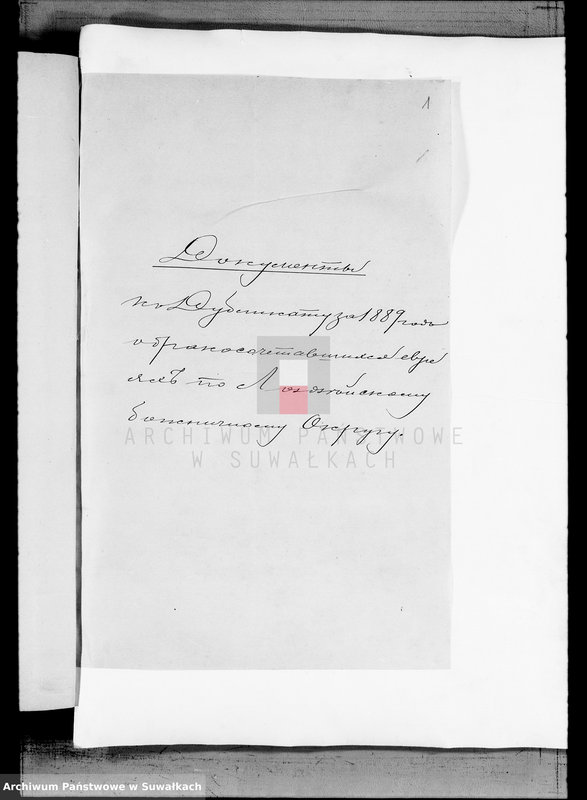 1
Документы
къ Дубликату за 1889 годъ
о бракосочетавшихся евре
яхъ по Лоздзейскому
божничному Округу.
ARCHIWUM PAŃSTWOWE
W SUWAŁKACH
Archiwum Państwowe w Suwałkach